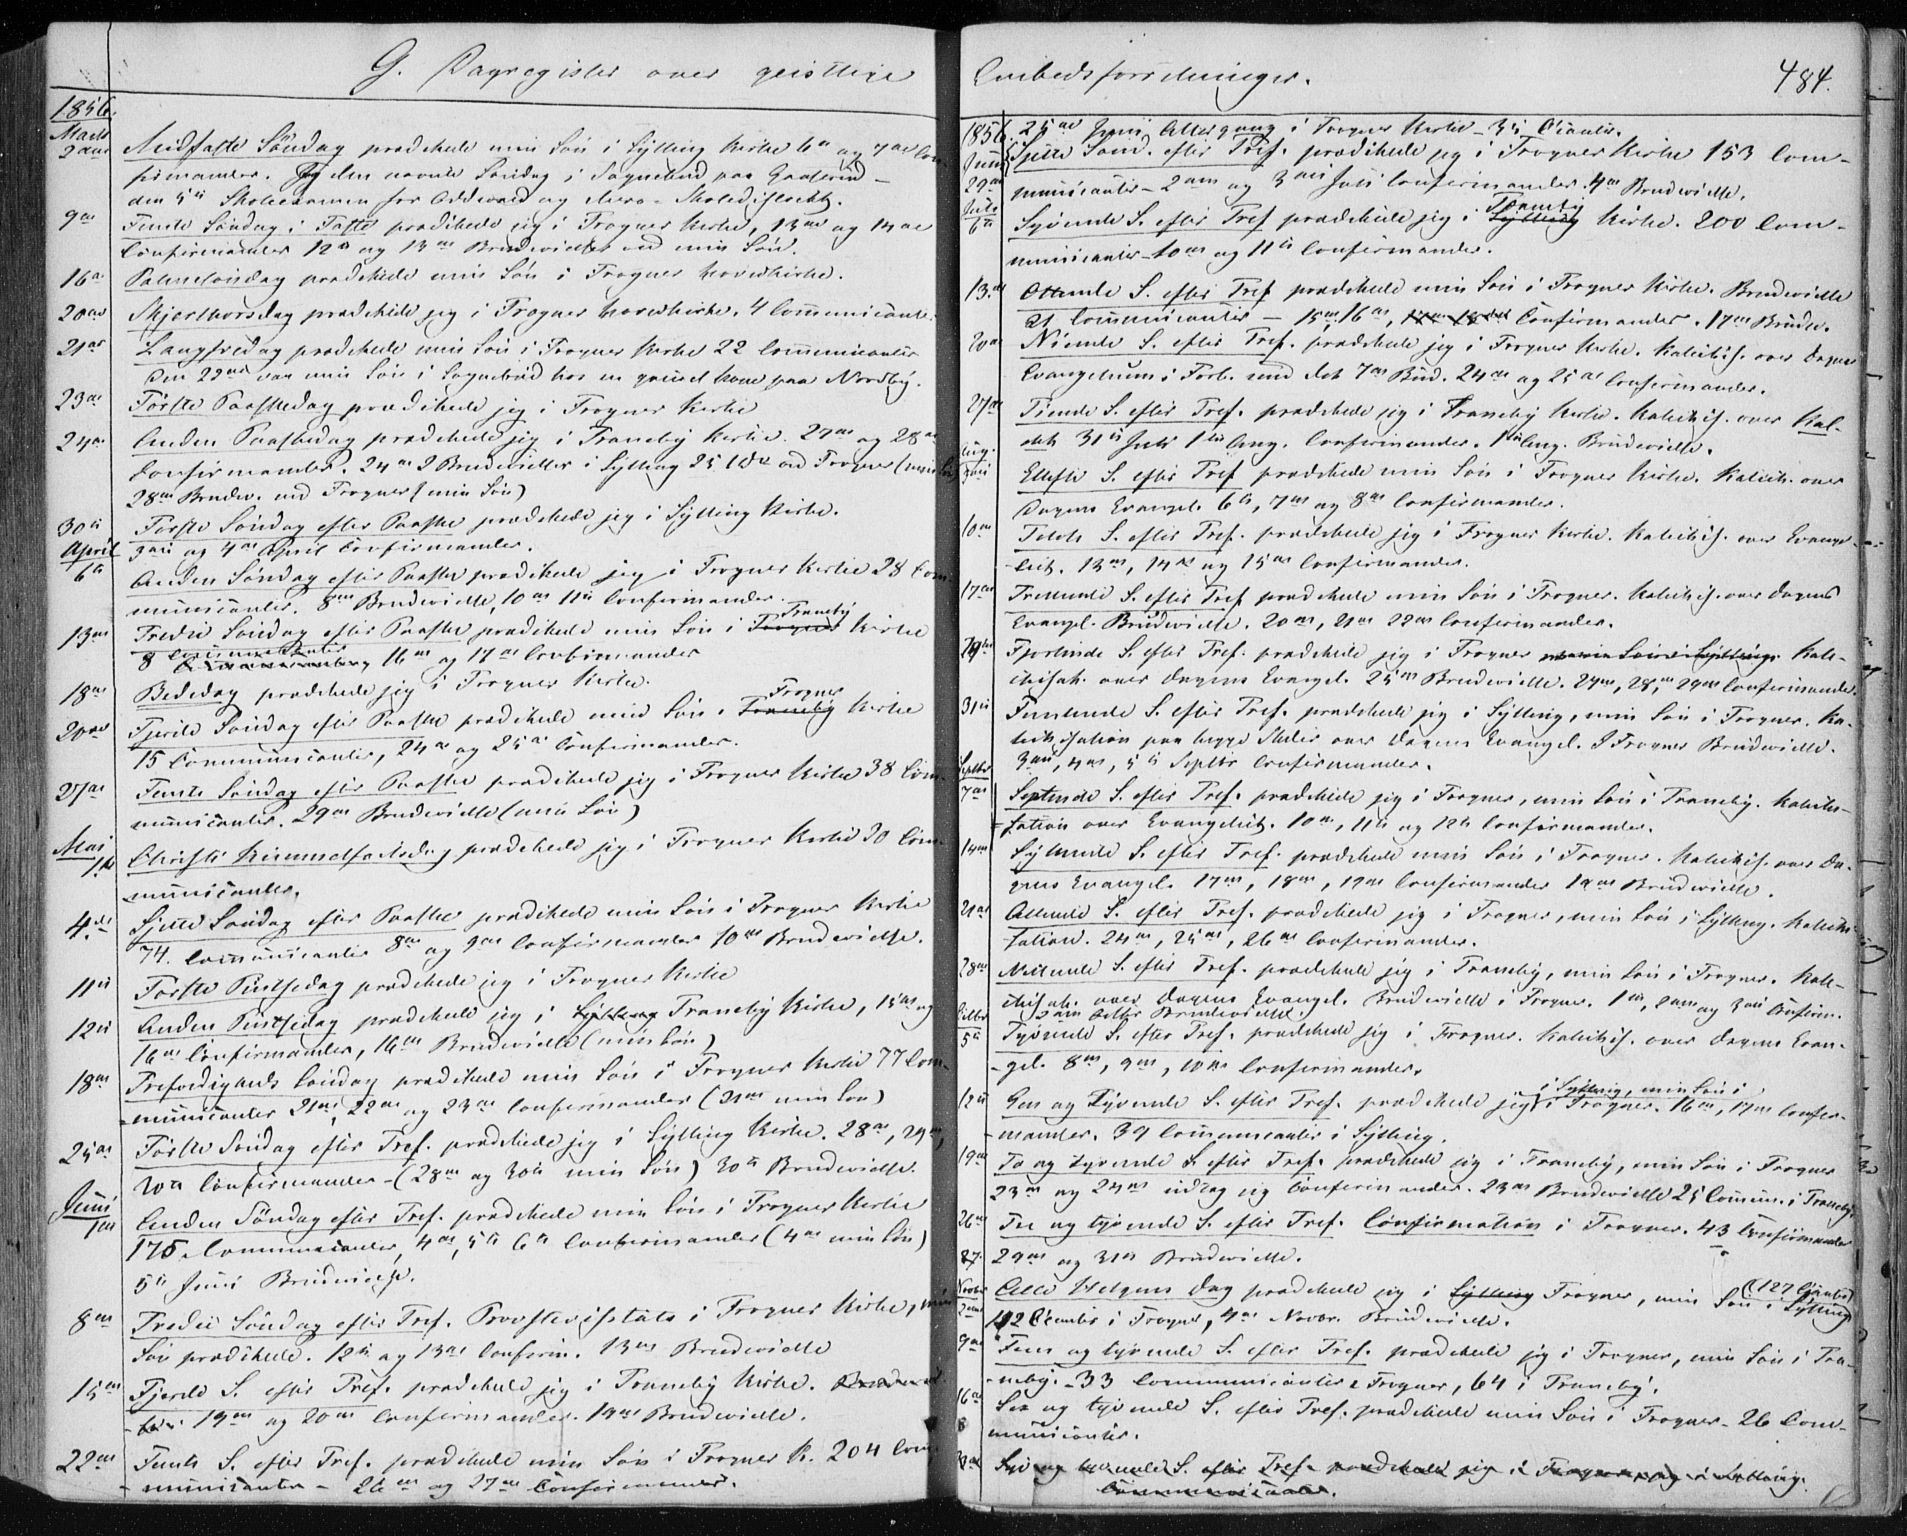 G. Dagregister over geistlige
1856.
Marts
2den Midfaste Søndag prædikede min Søn i Sylling Kirke 6te og 7de Con-
firmander. Jeg den nævnte Søndag i Sognebud paa
den 5te Skoleexamen for Oddevald og Skoledistrikt.
9de Femte Søndag i Faste prædikede jeg i Frogner Kirke, 13de og 14de
Confirmander 12te og 13de Brudevielser ved min Søn.
16de Palmesøndag prædikede min Søn i Frogner Hovedkirke.
20de Skjærthorsdag prædikede jeg i Frogner Hovedkirke. 4 Communicanter.
21de Langfredag prædikede min Søn i Frogner Kirke 22 Communicanter
Den 22de var min Søn i Sognebud hos en Kone paa Nordby.
23de Første Paaskedag prædikede jeg i Frogner Kirke
24de Anden Paaskedag prædikede jeg i Traneby Kirke. 27de og 28de
Confirmander. 24de 2 Brudevielser i Sylling 25 ved Frogner (min Søn)
28de Brudev. ved Frogner (min Søn)
30te Første Søndag efter Paaske prædikede jeg i Sylling Kirke.
April 3die og 4de April Confirmander.
6te Anden Søndag efter Paaske prædikede jeg i Frogner Kirke 28 Com-
municanter. 8de Brudevielse, 10de 11te Confirmander.
13de Tredie Søndag efter Paaske prædikede min Søn i Frogner Traneby Kirke
8 Communicanter 16de og 17de Confirmander
18de Bededag prædikede jeg i Frogner Kirke.
20de Fjerde Søndag efter Paaske prædikede min Søn i Traneby Frogner Kirke
15 Communicanter, 24de og 25de Confirmander.
27de Femte Søndag efter Paaske prædikede jeg i Frogner Kirke 38 Com-
municanter. 29de Brudevielse (min Søn)
Mai
1ste Christi Himmelfartsdag prædikede jeg i Frogner Kirke 30 Com-
municanter.
4de Sjette Søndag efter Paaske prædikede min Søn i Frogner Kirke
74. Communicanter 8de og 9de Confirmander 10de Brudevielse.
11te Første Pintsedag prædikede jeg i Frogner Kirke
12te Anden Pintsedag prædikede jeg i Sylling Traneby Kirke, 15de og
16de Confirmander, 16de Brudevielse (min Søn)
18de Trefoldigheds Søndag prædikede min Søn i Frogner Kirke 77 Com-
municanter 21de, 22de og 23de Confirmander (21de min Søn)
25de Første Søndag efter Tref. prædikede jeg i Sylling Kirke. 28de, 29de,
30te Confirmander (28de og 30te min Søn) 30te Brudevielse.
Juni
1ste Anden Søndag efter Tref. prædikede min Søn i Frogner Kirke
175. Communicanter, 4de, 5te 6te Confirmander (4de min Søn)
5te Juni Brudevielse.
8de Tredie Søndag efter Tref. Provstevisitats i Frogner Kirke, min
Søn prædikede. 12te og 13de Confirm. 13de Brudevielse
15de Fjerde S. efter Tref. prædikede jeg i Traneby Kirke.
19de og 20de Confirmander. 19de Brudevielse.
22de Femte S. efter Tref. prædikede min Søn i Frogner K. 204 Com-
municanter - 26de og 27de Confirmander.
Embedsforretninger.
484.
1856. 25de Juni Altergang i Frogner Kirke - 35 C'canter.
Juni Sjette Sønd. efter Tref. prædikede jeg i Frogner Kirke 153 Com-
29de municanter - 2den og 3die Juli Confirmander. 4de Brudevielse.
Juli
6te Syvende S. efter Tref prædikede jeg i Sylling Traneby Kirke. 200 Com-
municanter - 10de og 11te Confirmander.
13de Ottende S. efter Tref prædikede min Søn i Frogner Kirke. Brudevielse
21 Communicanter - 15de, 16de, Confirmander. 17de Brudev.
20de Niende S. efter Tref. prædikede jeg i Frogner Kirke. Katechis. over Dagens
Evangelium i Forb. med det 7de Bud. 24de og 25de Confirmander.
27de Tiende S. efter Tref. prædikede jeg i Traneby Kirke. Katechis. over
31te Juli 1ste Aug. Confirmander. 1ste Aug. Brudevielse.
Aug.
3die Ellefte S. efter Tref prædikede min Søn i Frogner Kirke. Katech. over
Dagens Evangel. 6te, 7de og 8de Confirmander.
10de Tolvte S. efter Tref. prædikede jeg i Frogner Kirke. Katechis. over Evange-
liet. 13de, 14de og 15de Confirmander.
17de Trettende S. efter Tref prædikede min Søn i Frogner. Katechis. over Dagens
Evangel. Brudevielse. 20de, 21de 22de Confirmander.
Fjortende S. efter Tref. prædikede jeg i Frogner min Søn i Sylling. Kate-
chisat. over Dagens Evangel. 25de Brudevielse. 27de, 28de, 29de Confirmander.
31te Femtende S. efter Tref. prædikede jeg i Sylling, min Søn i Frogner. Ka-
techisation paa begge Steder over Dagens Evangel. I Frogner Brudevielse.
Septbr 3die, 4de, 5te Septbr Confirmander.
7de Sextende S. efter Tref. prædikede jeg i Frogner, min Søn i Traneby. Katechi-
sation over Evangeliet. 10de, 11te og 12te Confirmander.
14de Syttende S. efter Tref. prædikede min Søn i Frogner. Katechis. over Da-
gens Evangel. 17de, 18de, 19de Confirmander 19de Brudevielse.
21de Attende S. efter Tref. prædikede jeg i Frogner, min Søn i Sylling. Katechi-
sation. 24de, 25de, 26de Confirmander.
28de Nittende S. efter Tref. prædikede jeg i Traneby, min Søn i Frogner. Kate-
chisat. over Dagens Evangel. Brudevielse i Frogner. 1ste, 2den og 3die Confirm.
Octbr 3die Octbr Brudevielse.
5te Tyvende S. efter Tref. prædikede jeg i Frogner. Katechis. over Dagens Evan-
gel. 8de, 9de, 10de Confirmander.
12te Een og Tyvende S. efter Tref. prædikede jeg i Sylling, min Søn i i Frogner. 16de, 17de Confir-
mander. 39 Communicanter i Sylling.
19de To og tyvende S. efter Tref. prædikede jeg i Traneby, min Søn i Frogner
23de og 24de udtog jeg Confirmander. 23de Brudevielse 25 Commun. i Traneby.
26de Tre og tyvende S. efter Tref. Confirmation i Frogner. 43 Confirmander
29de og 31te Brudevielse.
Novbr
2den Alle Helgens Dag prædikede jeg i Sylling Frogner, min Søn i Sylling (127 C'canter)
112 C'canter i Frogner, 4de Novbr. Brudevielse.
9de Fem og tyvende S. efter Tref. prædikede jeg i Frogner, min Søn i Tra-
neby. 33 Communicanter i Frogner, 64 i Traneby.
16de Sex og tyvende S. efter Tref. prædikede min Søn i Frogner - 26 Com-
municanter.
Syv og tyvende S. efter Tref. prædikede jeg i Frogner, og i Sylling.
Communicanter.